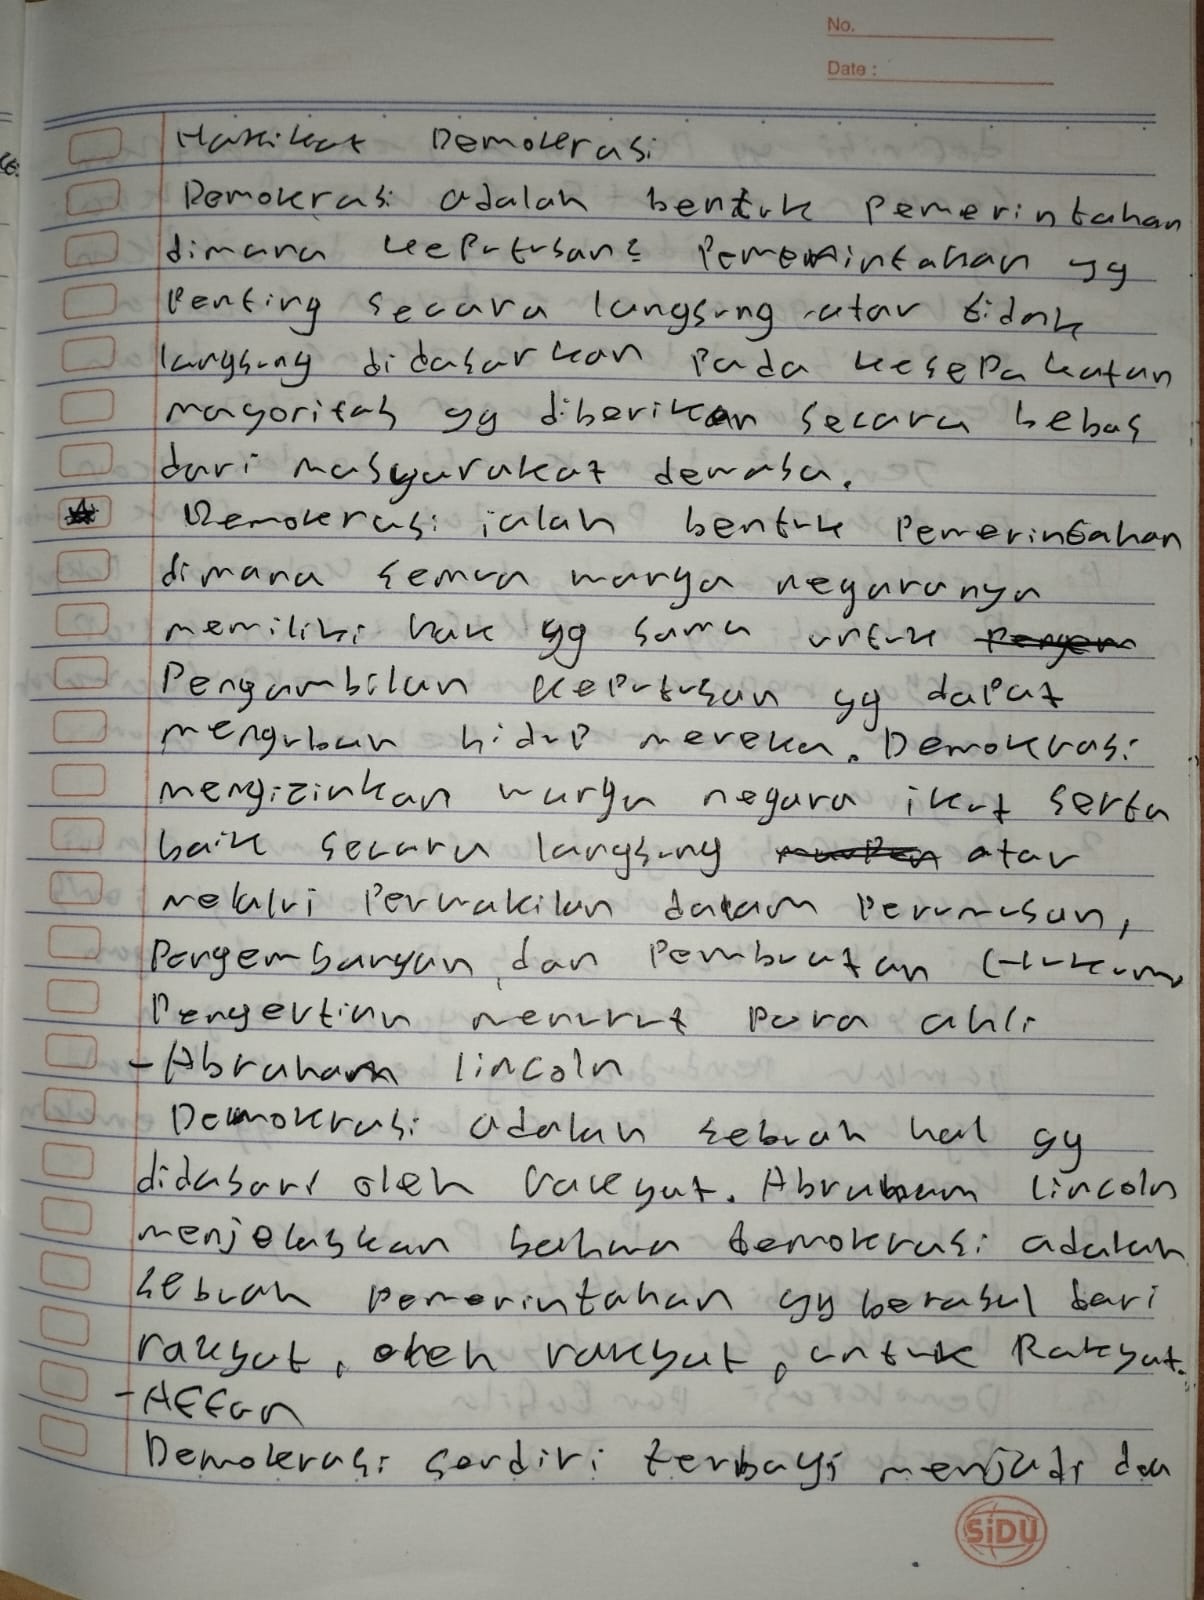 No.
Date :
Hakikat Demokrasi
Demokrasi adalah bentuk pemerintahan
dimana keputusan2 pemerintahan yg
penting secara langsung atau tidak
langsung didasarkan pada kesepakatan
mayoritas yg diberikan secara bebas
dari masyarakat dewasa.
Demokrasi ialah bentuk pemerintahan
dimana semua warga negaranya
memiliki hak yg sama untuk
Pengambilan keputusan yg dapat
mengubah hidup mereka. Demokrasi
mengizinkan warga negara ikut serta
baik secara langsung atau
melalui Perwakilan dalam Perumusan,
Pengembangan, dan Pembuatan Hukum
Pengertian menurut para ahli
- Abraham lincoln
Demokrasi adalah sebuah hal yg
didasari oleh rakyat. Abraham lincoln
menjelaskan bahwa demokrasi adalah
sebuah pemerintahan yg berasal dari
rakyat, oleh rakyat, untuk Rakyat.
- Affan
Demokrasi sendiri terbagi menjadi dua
SiDU